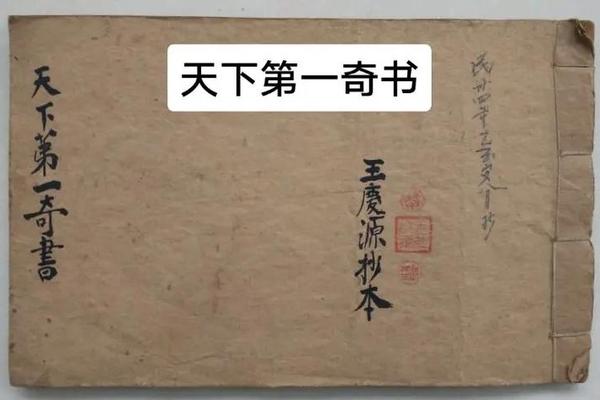 天下第一奇书
天下第一奇書
王慶源抄本
民卅四年